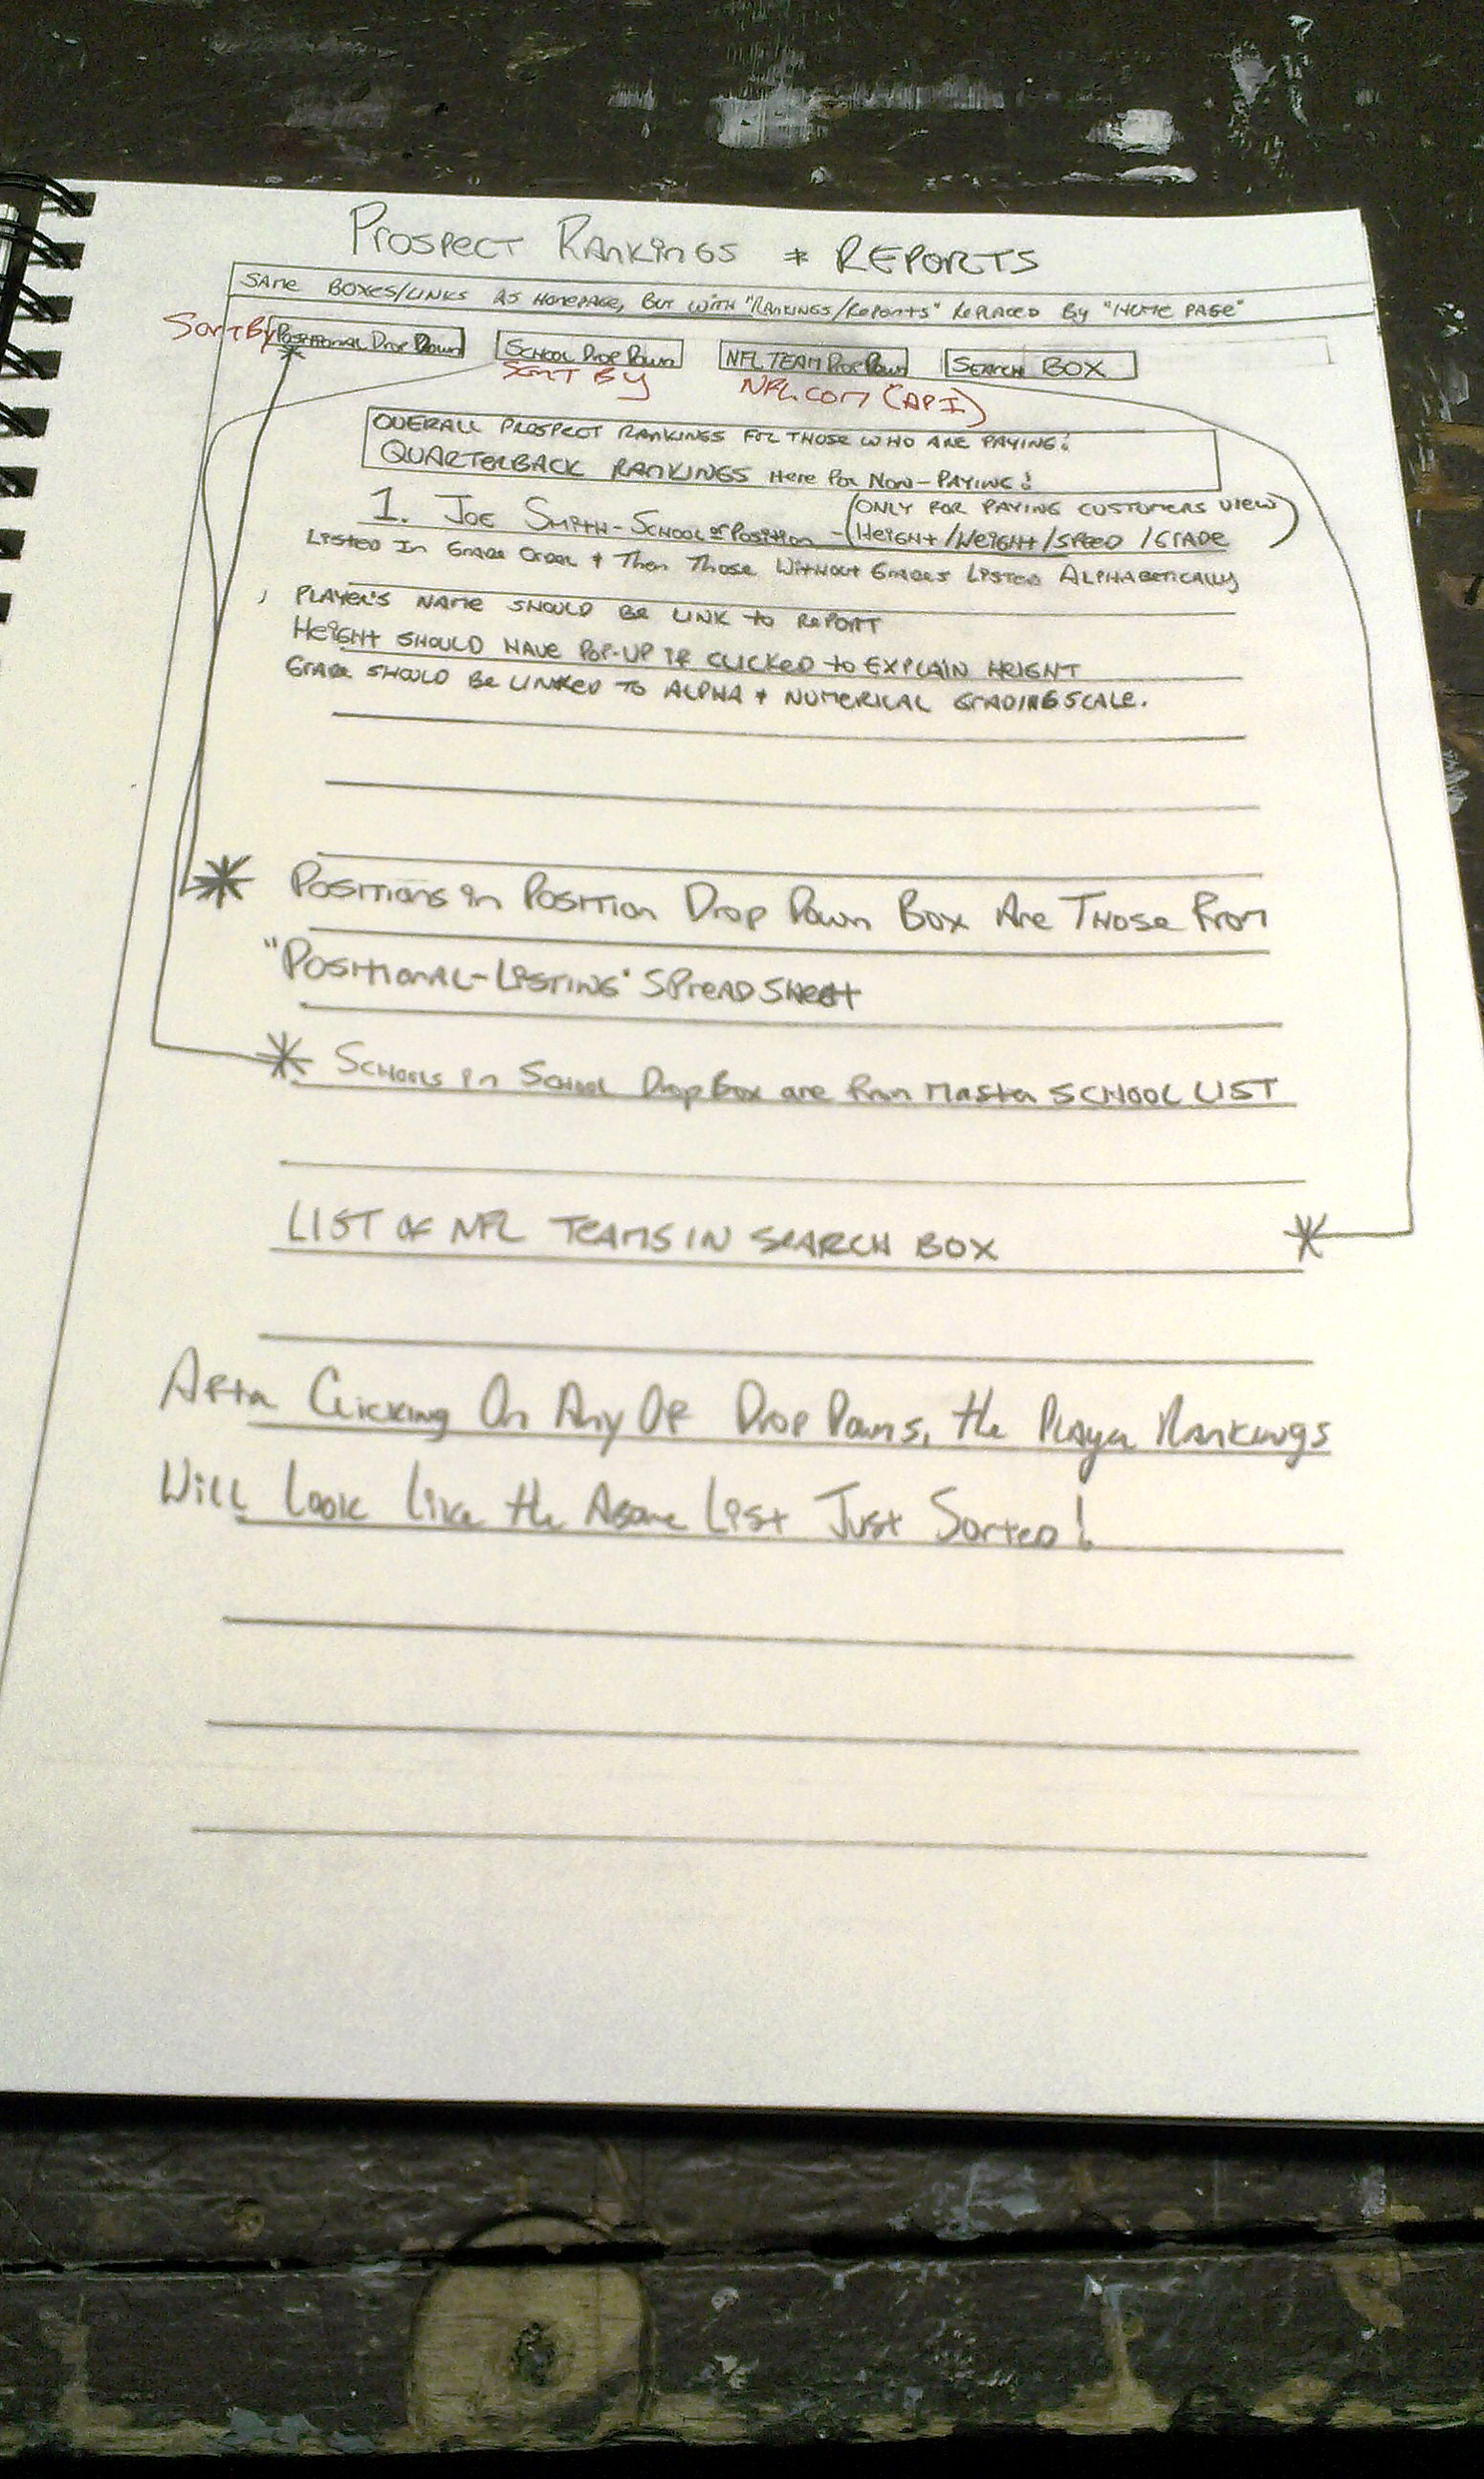 PROSPECT RANKINGS + REPORTS
SAME BOXES/LINKS AS HOMEPAGE, BUT WITH "RANKINGS/REPORTS" REPLACED BY "HOME PAGE"
SORT BY POSITIONAL DROP DOWN SCHOOL DROP DOWN NFL TEAM DROP DOWN SEARCH BOX
SORT BY NFL.COM (API)
OVERALL PROSPECT RANKINGS FOR THOSE WHO ARE PAYING!
QUARTERBACK RANKINGS HERE FOR NON-PAYING!
1. JOE SMITH - SCHOOL OF POSITION - (ONLY FOR PAYING CUSTOMERS VIEW
HEIGHT/WEIGHT/SPEED/GRADE)
LISTED IN GRADE ORDER + THEN THOSE WITHOUT GRADES LISTED ALPHABETICALLY
PLAYER'S NAME SHOULD BE LINK TO REPORT
HEIGHT SHOULD HAVE POP-UP IF CLICKED TO EXPLAIN HEIGHT
GRADE SHOULD BE LINKED TO ALPHA + NUMERICAL GRADING SCALE.
* POSITIONS IN POSITION DROP DOWN BOX ARE THOSE FROM
"POSITIONAL-LISTING" SPREADSHEET
* SCHOOLS IN SCHOOL DROP BOX ARE FROM MASTER SCHOOL LIST
LIST OF NFL TEAMS IN SEARCH BOX *
AFTER CLICKING ON ANY OF DROP DOWNS, THE PLAYER RANKINGS
WILL LOOK LIKE THE ABOVE LIST JUST SORTED!